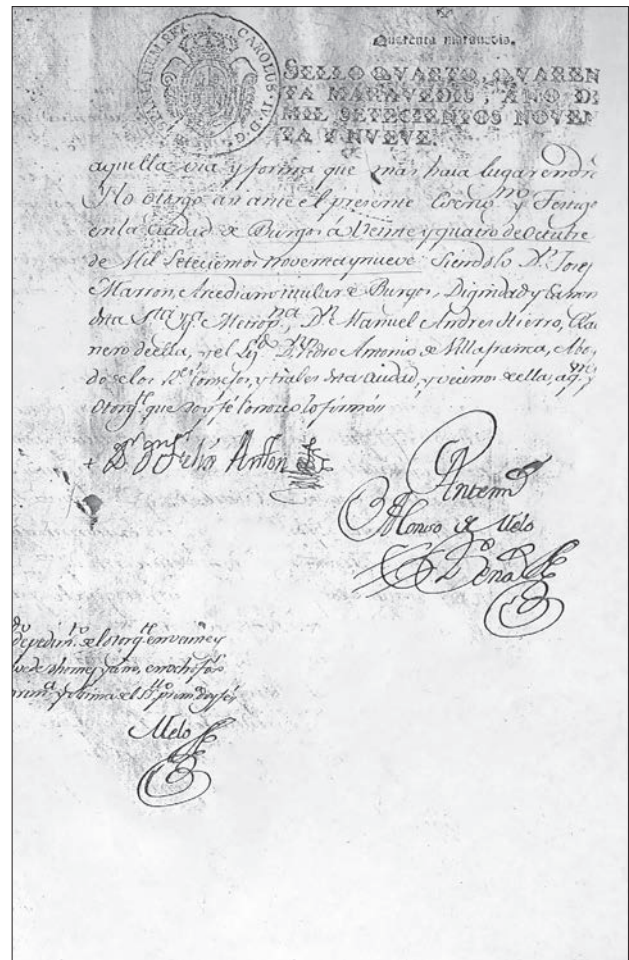 Quarenta maravedis.
CAROLUS·IV·D·G· HISPANIAR·REX
SELLO QVARTO, QVAREN
TA MARAVEDIS, AÑO DE
MIL SETECIENTOS NOVEN
TA Y NVEVE.
aquella via y forma que mas haia lugar en dro
lo otorgó asi ante el presente Escno y Testigs
en la Ciudad de Burgos á Veinte y quatro de Octubre
de Mil Setecientos noventa y nueve Siendolo Dn Josef
Marron, Arcediano titular de Burgos, Dignidad y Canon
dha Sta Yga Metropna, Dn Manuel Andres Hierro, Cla
nero de ella, y el Lydo Dn Pedro Antonio de Villafranca, Abo
do de los Rs Consejos, y trales desta Ciudad, y vecinos de ella, aqn y
Otorgte que doy fé conozco lo firmó
+ Dn Julián Anton
Antemi
Alonso de Melo
Peña
de pedimto del otorgte en veinte y
ve de dho mes y año, en ocho fo
Melo